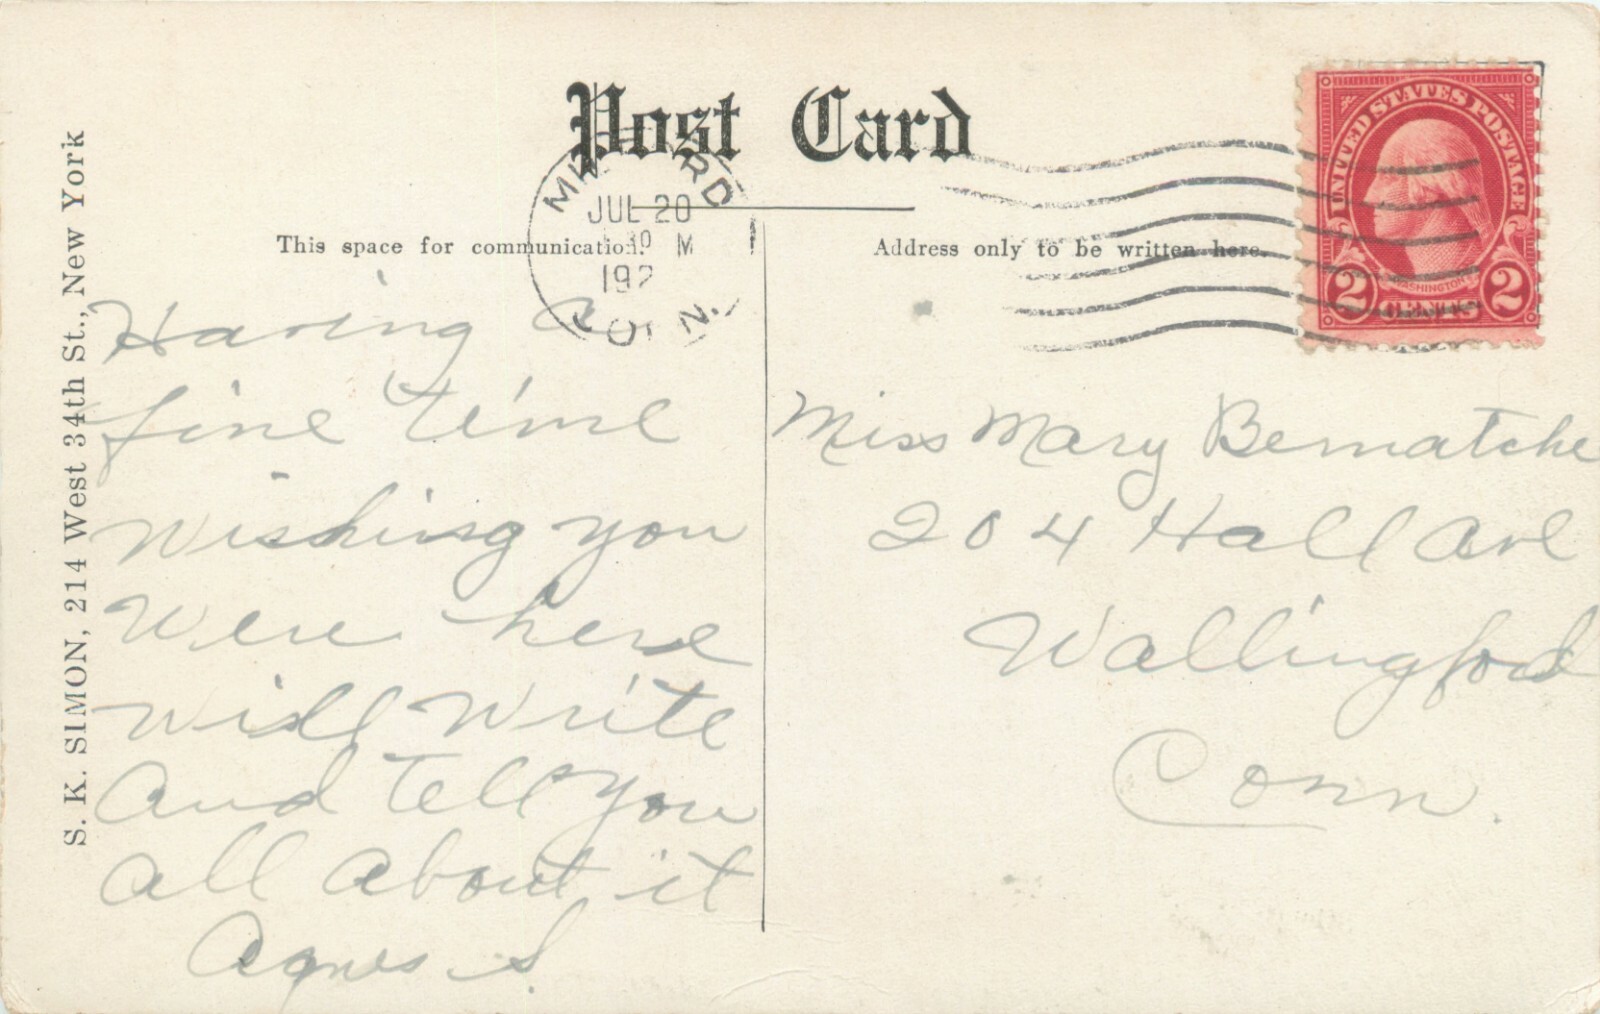 Post Card
S. K. SIMON, 214 West 34th St., New York
This space for communication.
Address only to be written here.
JUL 20
30 M
192
CONN.
UNITED STATES POSTAGE
WASHINGTON
2 CENTS 2
Having a
fine time
Wishing you
Were here
Will Write
And tell you
all about it
Agnes S.
Miss Mary Bernatche
204 Hall Ave
Wallingford
Conn.